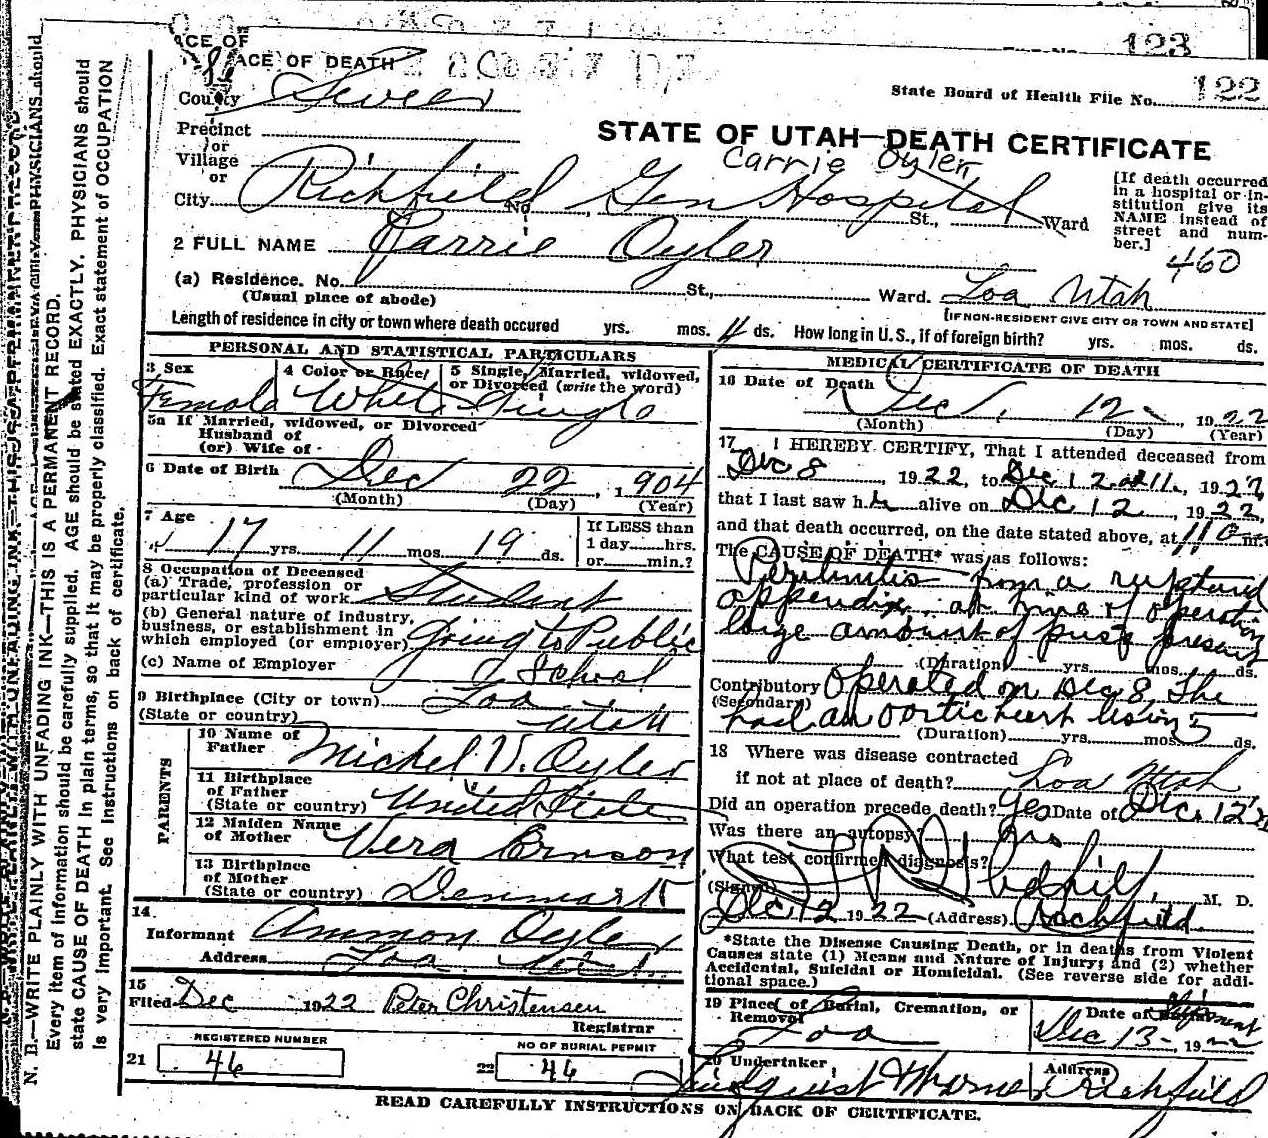 123
ACE OF
PLACE OF DEATH
County Sevier
State Board of Health File No. 122
Precinct
or
Village
or
City Richfield No. Gen Hospital St., Ward
STATE OF UTAH—DEATH CERTIFICATE
Carrie Oyler
[If death occurred
in a hospital or in-
stitution give its
NAME instead of
street and num-
ber.]
460
2 FULL NAME Carrie Oyler
(a) Residence. No. St., Ward. Loa Utah
(Usual place of abode)
[IF NON-RESIDENT GIVE CITY OR TOWN AND STATE]
Length of residence in city or town where death occured yrs. mos. 4 ds. How long in U.S., if of foreign birth? yrs. mos. ds.
PERSONAL AND STATISTICAL PARTICULARS
3 Sex
Female
4 Color or Race
White
5 Single, Married, widowed,
or Divorced (write the word)
Single
5a If Married, widowed, or Divorced
Husband of
(or) Wife of
6 Date of Birth Dec 22, 1904
(Month) (Day) (Year)
7 Age
17 yrs. 11 mos. 19 ds.
If LESS than
1 day hrs.
or min.?
8 Occupation of Deceased
(a) Trade, profession or
particular kind of work Student
(b) General nature of industry,
business, or establishment in
which employed (or employer) going to Public
School
(c) Name of Employer
9 Birthplace (City or town) Loa
(State or country) Utah
PARENTS
10 Name of
Father Michel V. Oyler
11 Birthplace
of Father
(State or country) United States
12 Maiden Name
of Mother Vera Brnson
13 Birthplace
of Mother
(State or country) Denmark
14
Informant Ammon Oyler
Address Loa Utah
15
Filed Dec 1922 Peter Christensen
Registrar
REGISTERED NUMBER
21 46
NO OF BURIAL PERMIT
22 46
MEDICAL CERTIFICATE OF DEATH
16 Date of Death
Dec 12 1922
(Month) (Day) (Year)
17 I HEREBY CERTIFY, That I attended deceased from
Dec 8 1922, to Dec 12 at 11, 1922
that I last saw h alive on Dec 12, 1922,
and that death occurred, on the date stated above, at 11 m.
The CAUSE OF DEATH* was as follows:
Peritinitis from a ruptured
appendix, at time of operation
large amount of puss present
(Duration) yrs. mos. ds.
Contributory Operated on Dec 8, She
(Secondary)
had an aortic heart lesion 5
(Duration) yrs. mos. ds.
18 Where was disease contracted
if not at place of death? Loa Utah
Did an operation precede death? Yes Date of Dec. 12
Was there an autopsy? no
What test confirmed diagnosis?
(Signed) M. D.
Dec 12 1922 (Address) Richfield
*State the Disease Causing Death, or in deaths from Violent
Causes state (1) Means and Nature of Injury; and (2) whether
Accidental, Suicidal or Homicidal. (See reverse side for addi-
tional space.)
19 Place of Burial, Cremation, or
Removal
Loa
Date of
Dec 13 1922
20 Undertaker
Address
Richfield
READ CAREFULLY INSTRUCTIONS ON BACK OF CERTIFICATE.
N. B.—WRITE PLAINLY WITH UNFADING INK—THIS IS A PERMANENT RECORD.
Every item of information should be carefully supplied. AGE should be stated EXACTLY. PHYSICIANS should
state CAUSE OF DEATH in plain terms, so that it may be properly classified. Exact statement of OCCUPATION
is very important. See instructions on back of certificate.